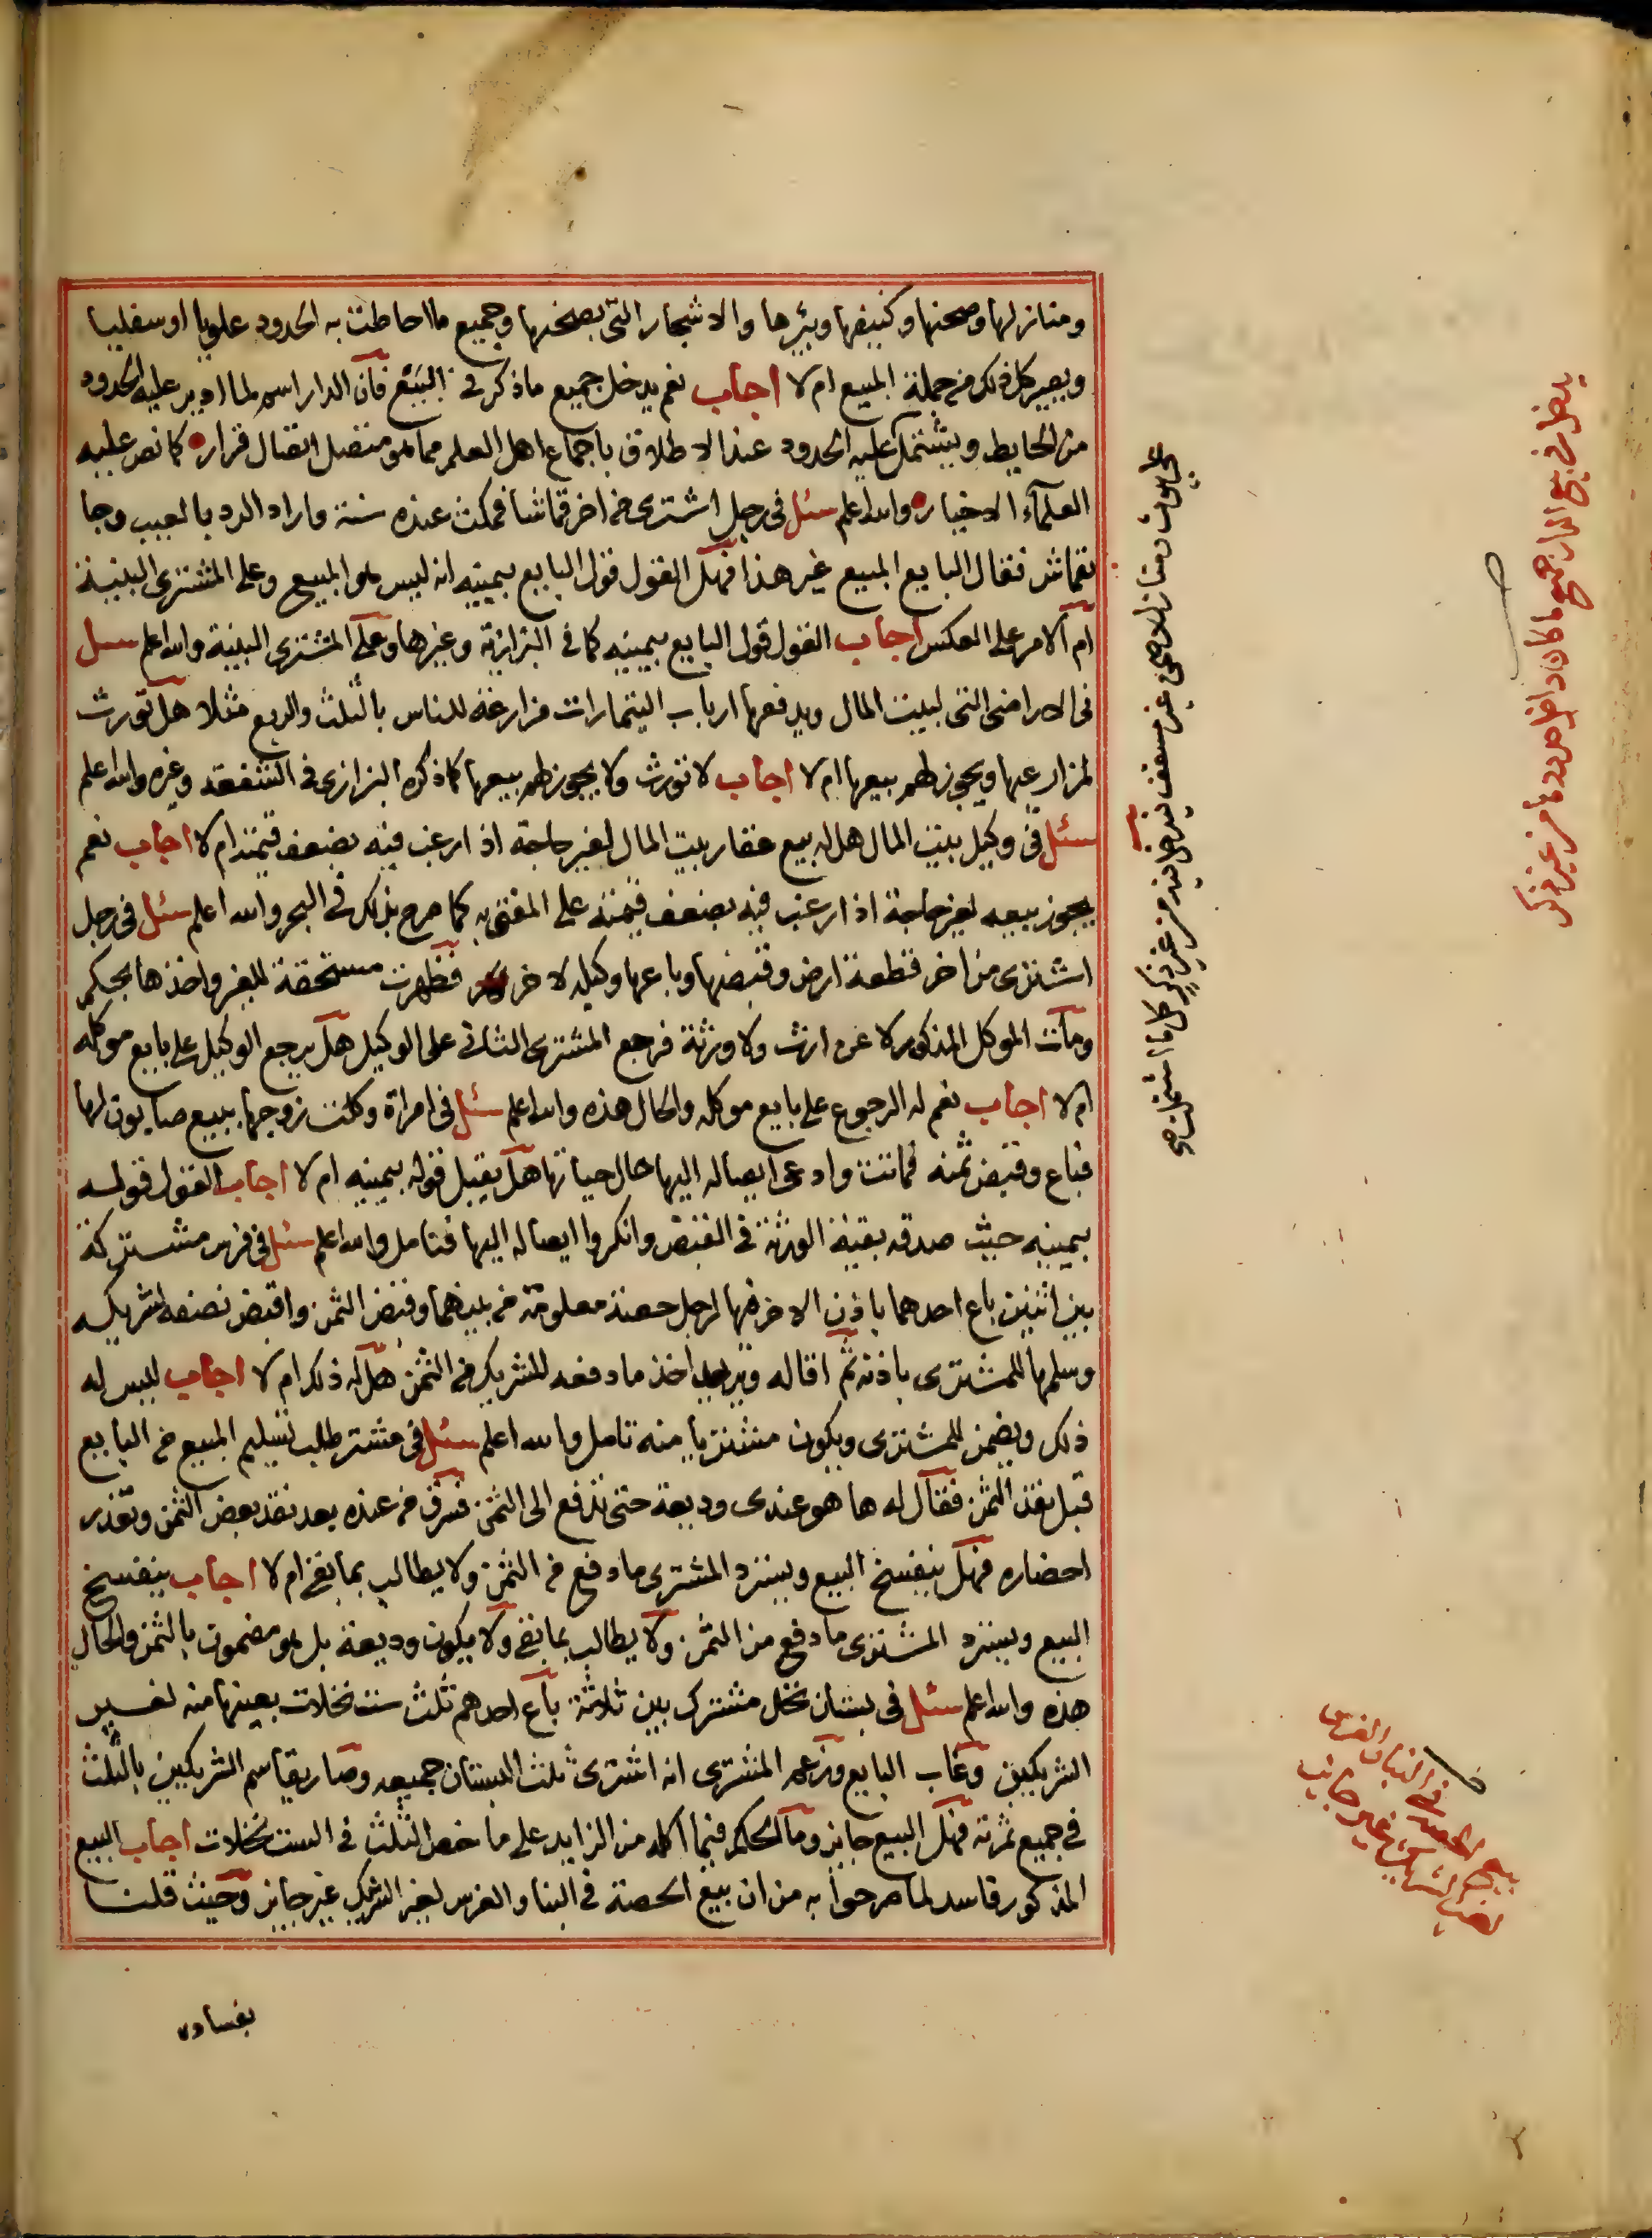 ومنازلها وصحنها وكنيفها وبئرها والاشجار التى بصحنها وجميع ما احاطت به الحدود علويا او سفليا
ويصير كل ذلك من جملة المبيع ام لا اجاب نعم يدخل جميع ما ذكر فى البيع فان الدار اسم لما ادير عليه الحدود
من الحايط ويشتمل عليه الحدود عند الاطلاق باجماع اهل العلم مما هو متصل اتصال قرار كما نص عليه
العلمآء الاخيار والله اعلم سئل فى رجل اشترى من اخر قماشا فمكث عنده سنة واراد الرد بالعيب وجا
بقماش فقال البايع المبيع غير هذا فهل القول قول البايع بيمينه انه ليس هو المبيع وعلى المشترى البينة
ام الامر على العكس اجاب القول قول البايع بيمينه كما فى البزازية وغيرها وعلى المشترى البينة والله اعلم سئل
فى الاراضى التى لبيت المال ويدفعها ارباب التيمارات مزارعة للناس بالثلث والربع مثلا هل تورث
لمزارعيها ويجوز لهم بيعها ام لا اجاب لا تورث ولا يجوز لهم بيعها كما ذكره البزازى فى الشفعة وغيره والله اعلم
سئل فى وكيل بيت المال هل له بيع عقار بيت المال لغير حاجة اذا رغب فيه بضعف قيمته ام لا اجاب نعم
يجوز بيعه لغير حاجة اذا رغب فيه بضعف قيمته على المفتى به كما صرح بذلك فى البحر والله اعلم سئل فى رجل
اشترى من اخر قطعة ارض وقبضها وباعها وكيله لاخر فظهرت مستحقة للغير واخذها بحكم
ومات الموكل المذكور لا عن ارث ولا ورثة فرجع المشترى الثانى على الوكيل هل يرجع الوكيل على بايع موكله
ام لا اجاب نعم له الرجوع على بايع موكله والحال هذه والله اعلم سئل فى امراة وكلت زوجها ببيع صابون لها
فباع وقبض ثمنه فماتت وادعى ايصاله اليها حال حياتها هل يقبل قوله بيمينه ام لا اجاب القول قوله
بيمينه حيث صدقه بقية الورثة فى القبض وانكروا ايصاله اليها فتامل والله اعلم سئل فى فرس مشتركة
بين اثنين باع احدهما باذن الاخر فيها لرجل حصة معلومة من بينهما وقبض الثمن واقبض نصفه لشريكه
وسلمها للمشترى باذنه ثم اقاله ويريد اخذ ما دفعه للشريك من الثمن هل له ذلك ام لا اجاب ليس له
ذلك ويضمن للمشترى ويكون مشتريا منه تامل والله اعلم سئل فى مشتر طلب تسليم المبيع من البايع
قبل نقد الثمن فقال له ها هو عندى وديعة حتى تدفع الى الثمن فسرق من عنده بعد نقد بعض الثمن وتعذر
احضاره فهل ينفسخ البيع ويسترد المشترى ما دفع من الثمن ولا يطالب بما بقى ام لا اجاب ينفسخ
البيع ويسترد المشترى ما دفع من الثمن ولا يطالب بما بقى ولا يكون وديعة بل هو مضمون بالثمن والحال
هذه والله اعلم سئل فى بستان نخل مشترك بين ثلاثة باع احدهم ثلث ست نخلات بعينها منه لغير
الشريكين وغاب البايع وزعم المشترى انه اشترى ثلث البستان جميعه وصار يقاسم الشريكين بالثلث
فى جميع ثمرته فهل البيع جايز وما الحكم فيما اكله من الزايد على ما خص الثلث فى الست نخلات اجاب البيع
المذكور فاسد لما صرحوا به من ان بيع الحصة فى البنا والغرس لغير الشريك غير جايز وحيث قلنا
بفساده
يدخل فى بيع الدار جميع ما كان داخل حدودها من غير ذكر
بيع الحصة فى البنا والغرس
لغير الشريك غير جايز